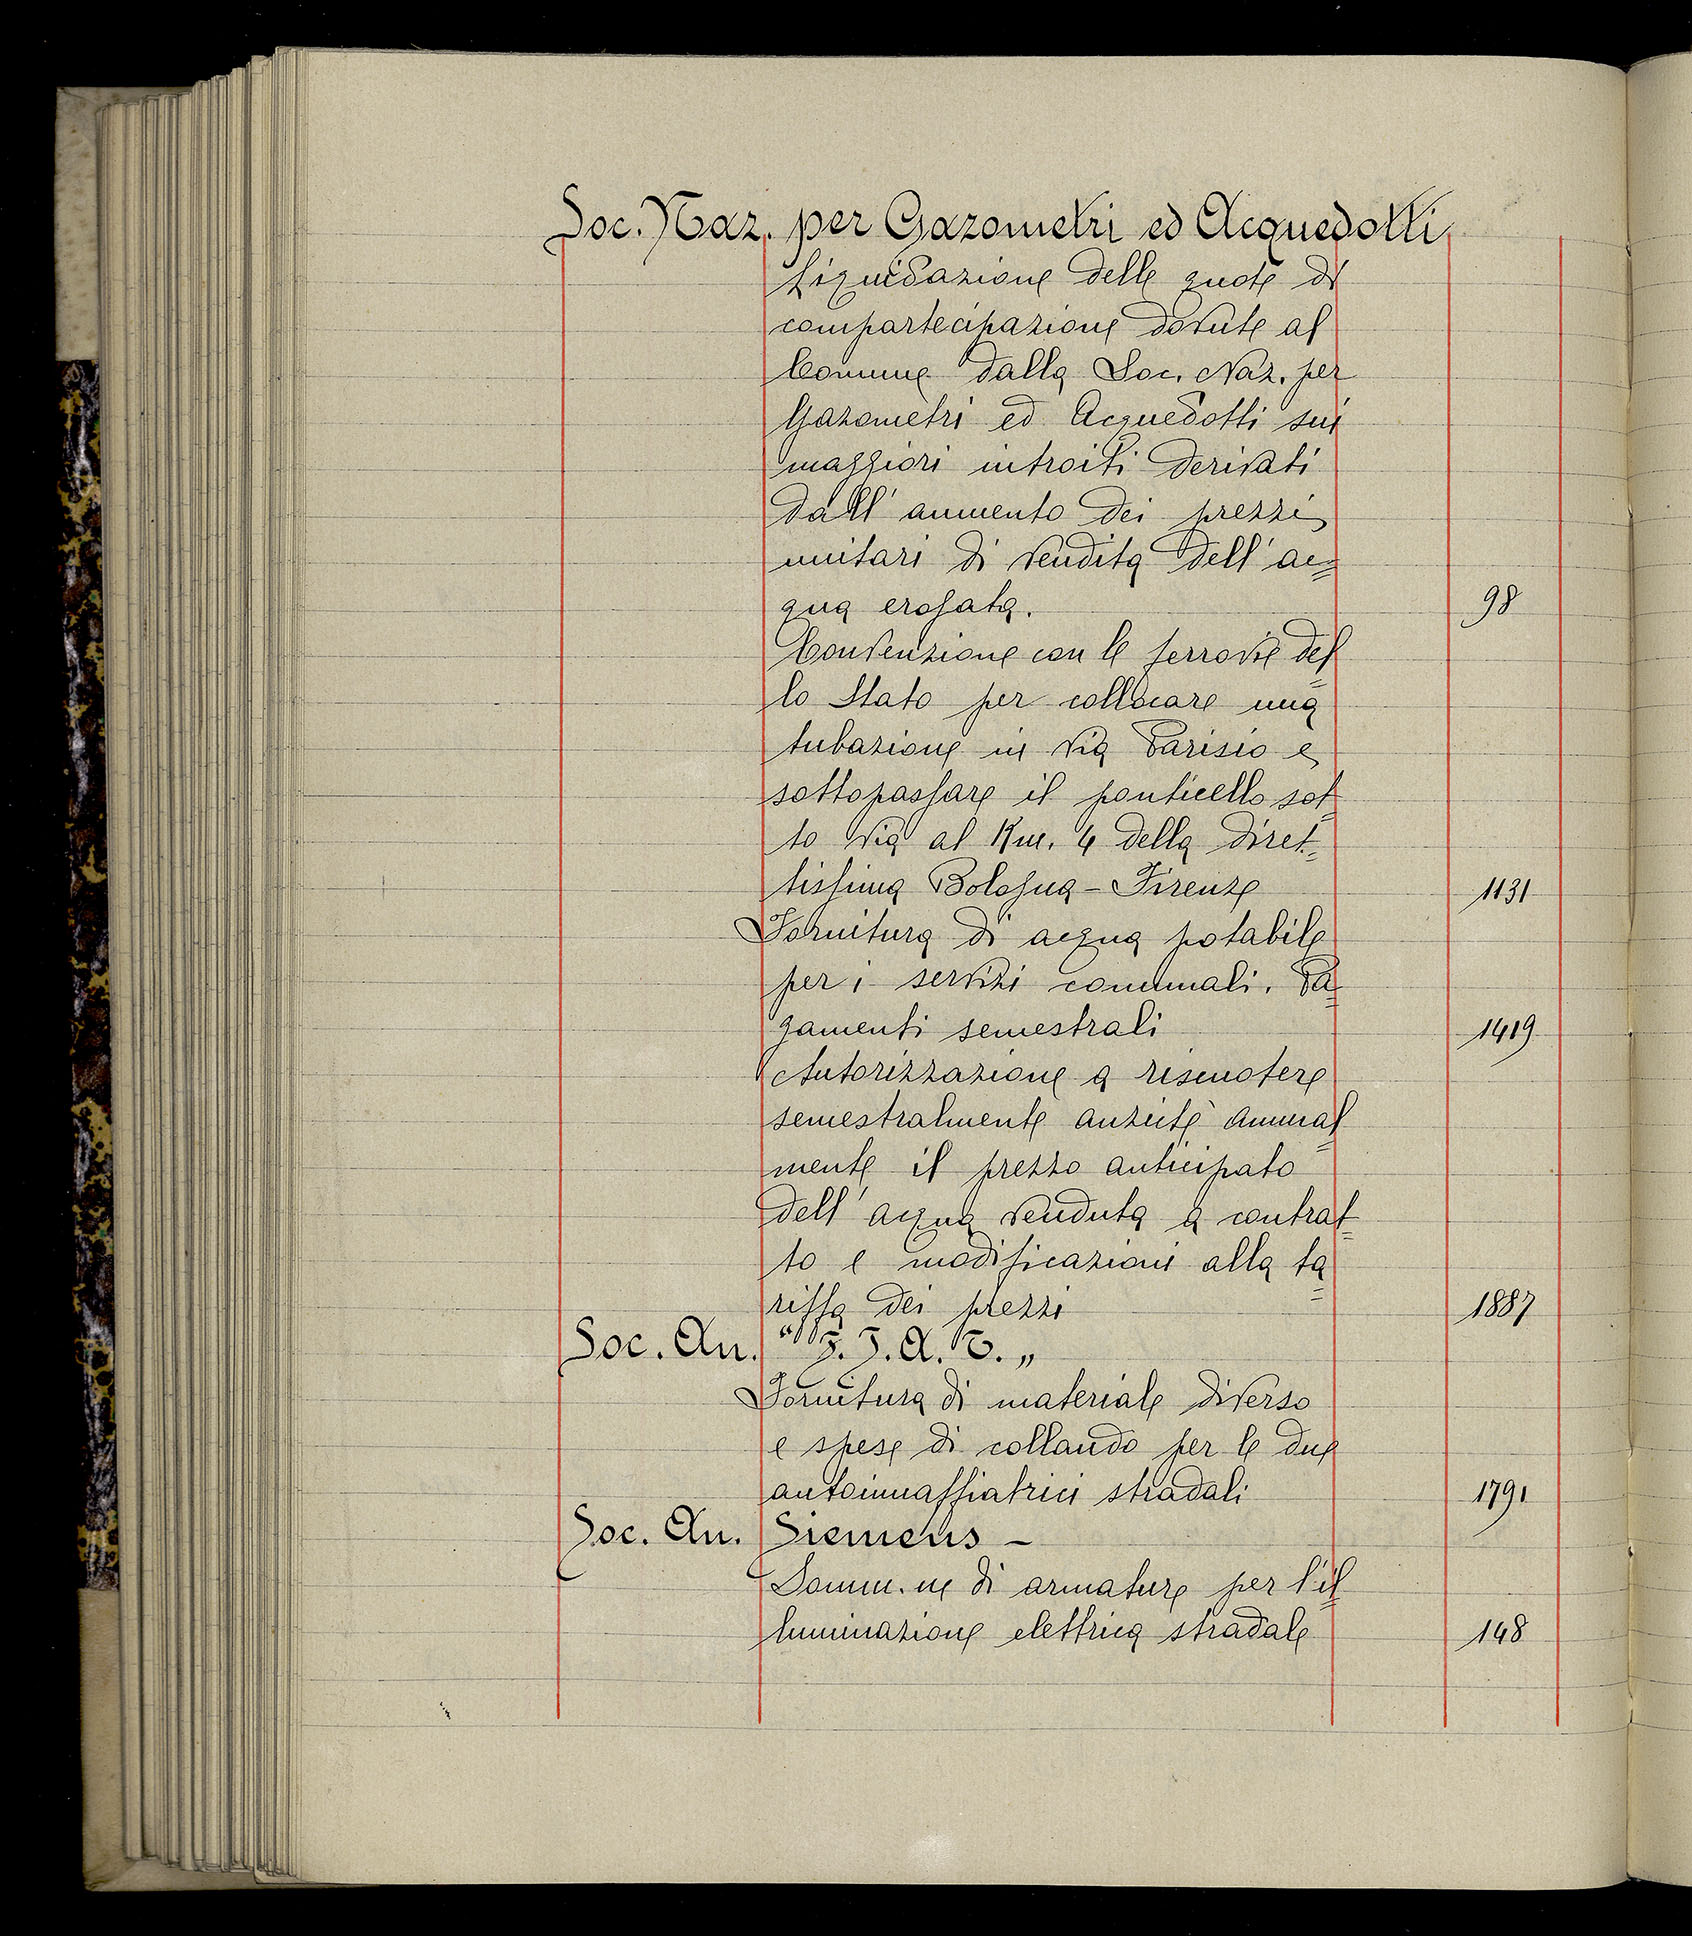 Soc. Naz. per Gazometri ed Acquedotti
Liquidazione delle quote di
compartecipazione dovute al
Comune dalla Soc. Naz. per
Gazometri ed Acquedotti sui
maggiori introiti derivati
dall'aumento dei prezzi
unitari di vendita dell'ac=
qua erogata. 98
Convenzione con le ferrovie del=
lo Stato per collocare una
tubazione in via Parisio e
sottopassare il ponticello sot=
to via al Km. 4 della diret=
tissima Bologna - Firenze 1131
Fornitura di acqua potabile
per i servizi comunali. Pa=
gamenti semestrali 1419
Autorizzazione a riscuotere
semestralmente anzichè annual=
mente il prezzo anticipato
dell'acqua venduta a contrat=
to e modificazioni alla ta=
riffa dei prezzi 1887
Soc. An. "F.I.A.T.„
Fornitura di materiale diverso
e spese di collaudo per le due
autoinnaffiatrici stradali 1791
Soc. An. Siemens -
Somm.ne di armature per l'il=
luminazione elettrica stradale 148